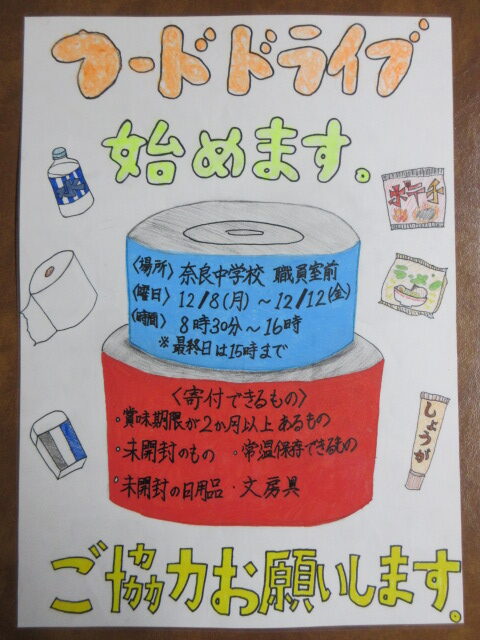 フードドライブ
始めます。
水
ポテチ
ラーメン
しょうが
〈場所〉 奈良中学校 職員室前
〈曜日〉 12/8(月)～12/12(金)
〈時間〉 8時30分～16時
※最終日は15時まで
〈寄付できるもの〉
・賞味期限が2か月以上あるもの
・未開封のもの ・常温保存できるもの
・未開封の日用品・文房具
ご協力お願いします。